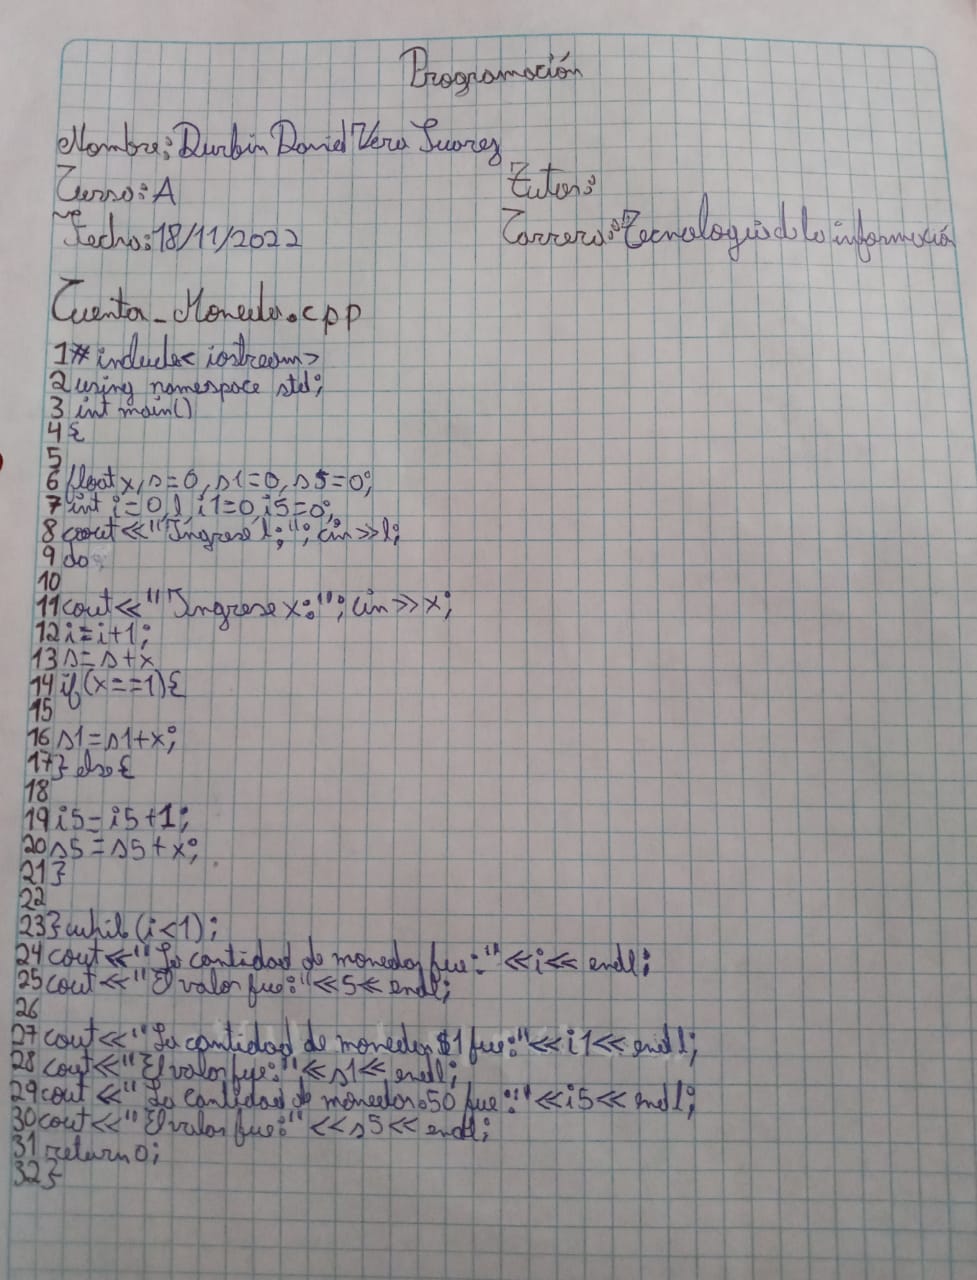 Programación
Nombre: Durbin David Vera Suarez
Curso: A
Tutor:
Fecha: 18/11/2022
Carrera: Tecnologia de la información
Cuenta_Moneda.cpp
1 # include< iostream>
2 using namespace std;
3 int main()
4 {
5
6 float x, s=0, s1=0, s5=0;
7 int i=0, l, i1=0, i5=0;
8 cout<<"Ingrese l:"; cin>>l;
9 do
10
11 cout<<"Ingrese x:"; cin>>x;
12 i=i+1;
13 s=s+x
14 if(x==1){
15
16 s1=s1+x;
17 } else {
18
19 i5=i5+1;
20 s5=s5+x;
21 }
22
23 } while (i<1);
24 cout<<"La cantidad de monedas fue:"<<i<< endl;
25 cout<<"El valor fue:"<<S<< endl;
26
27 cout<<"La cantidad de monedas $1 fue:"<<i1<< endl;
28 cout<<"El valor fue:"<<s1<< endl;
29 cout <<"La cantidad de monedas 0.50 fue:"<<i5<< endl;
30 cout<<"El valor fue:"<<s5<< endl;
31 return 0;
32 }